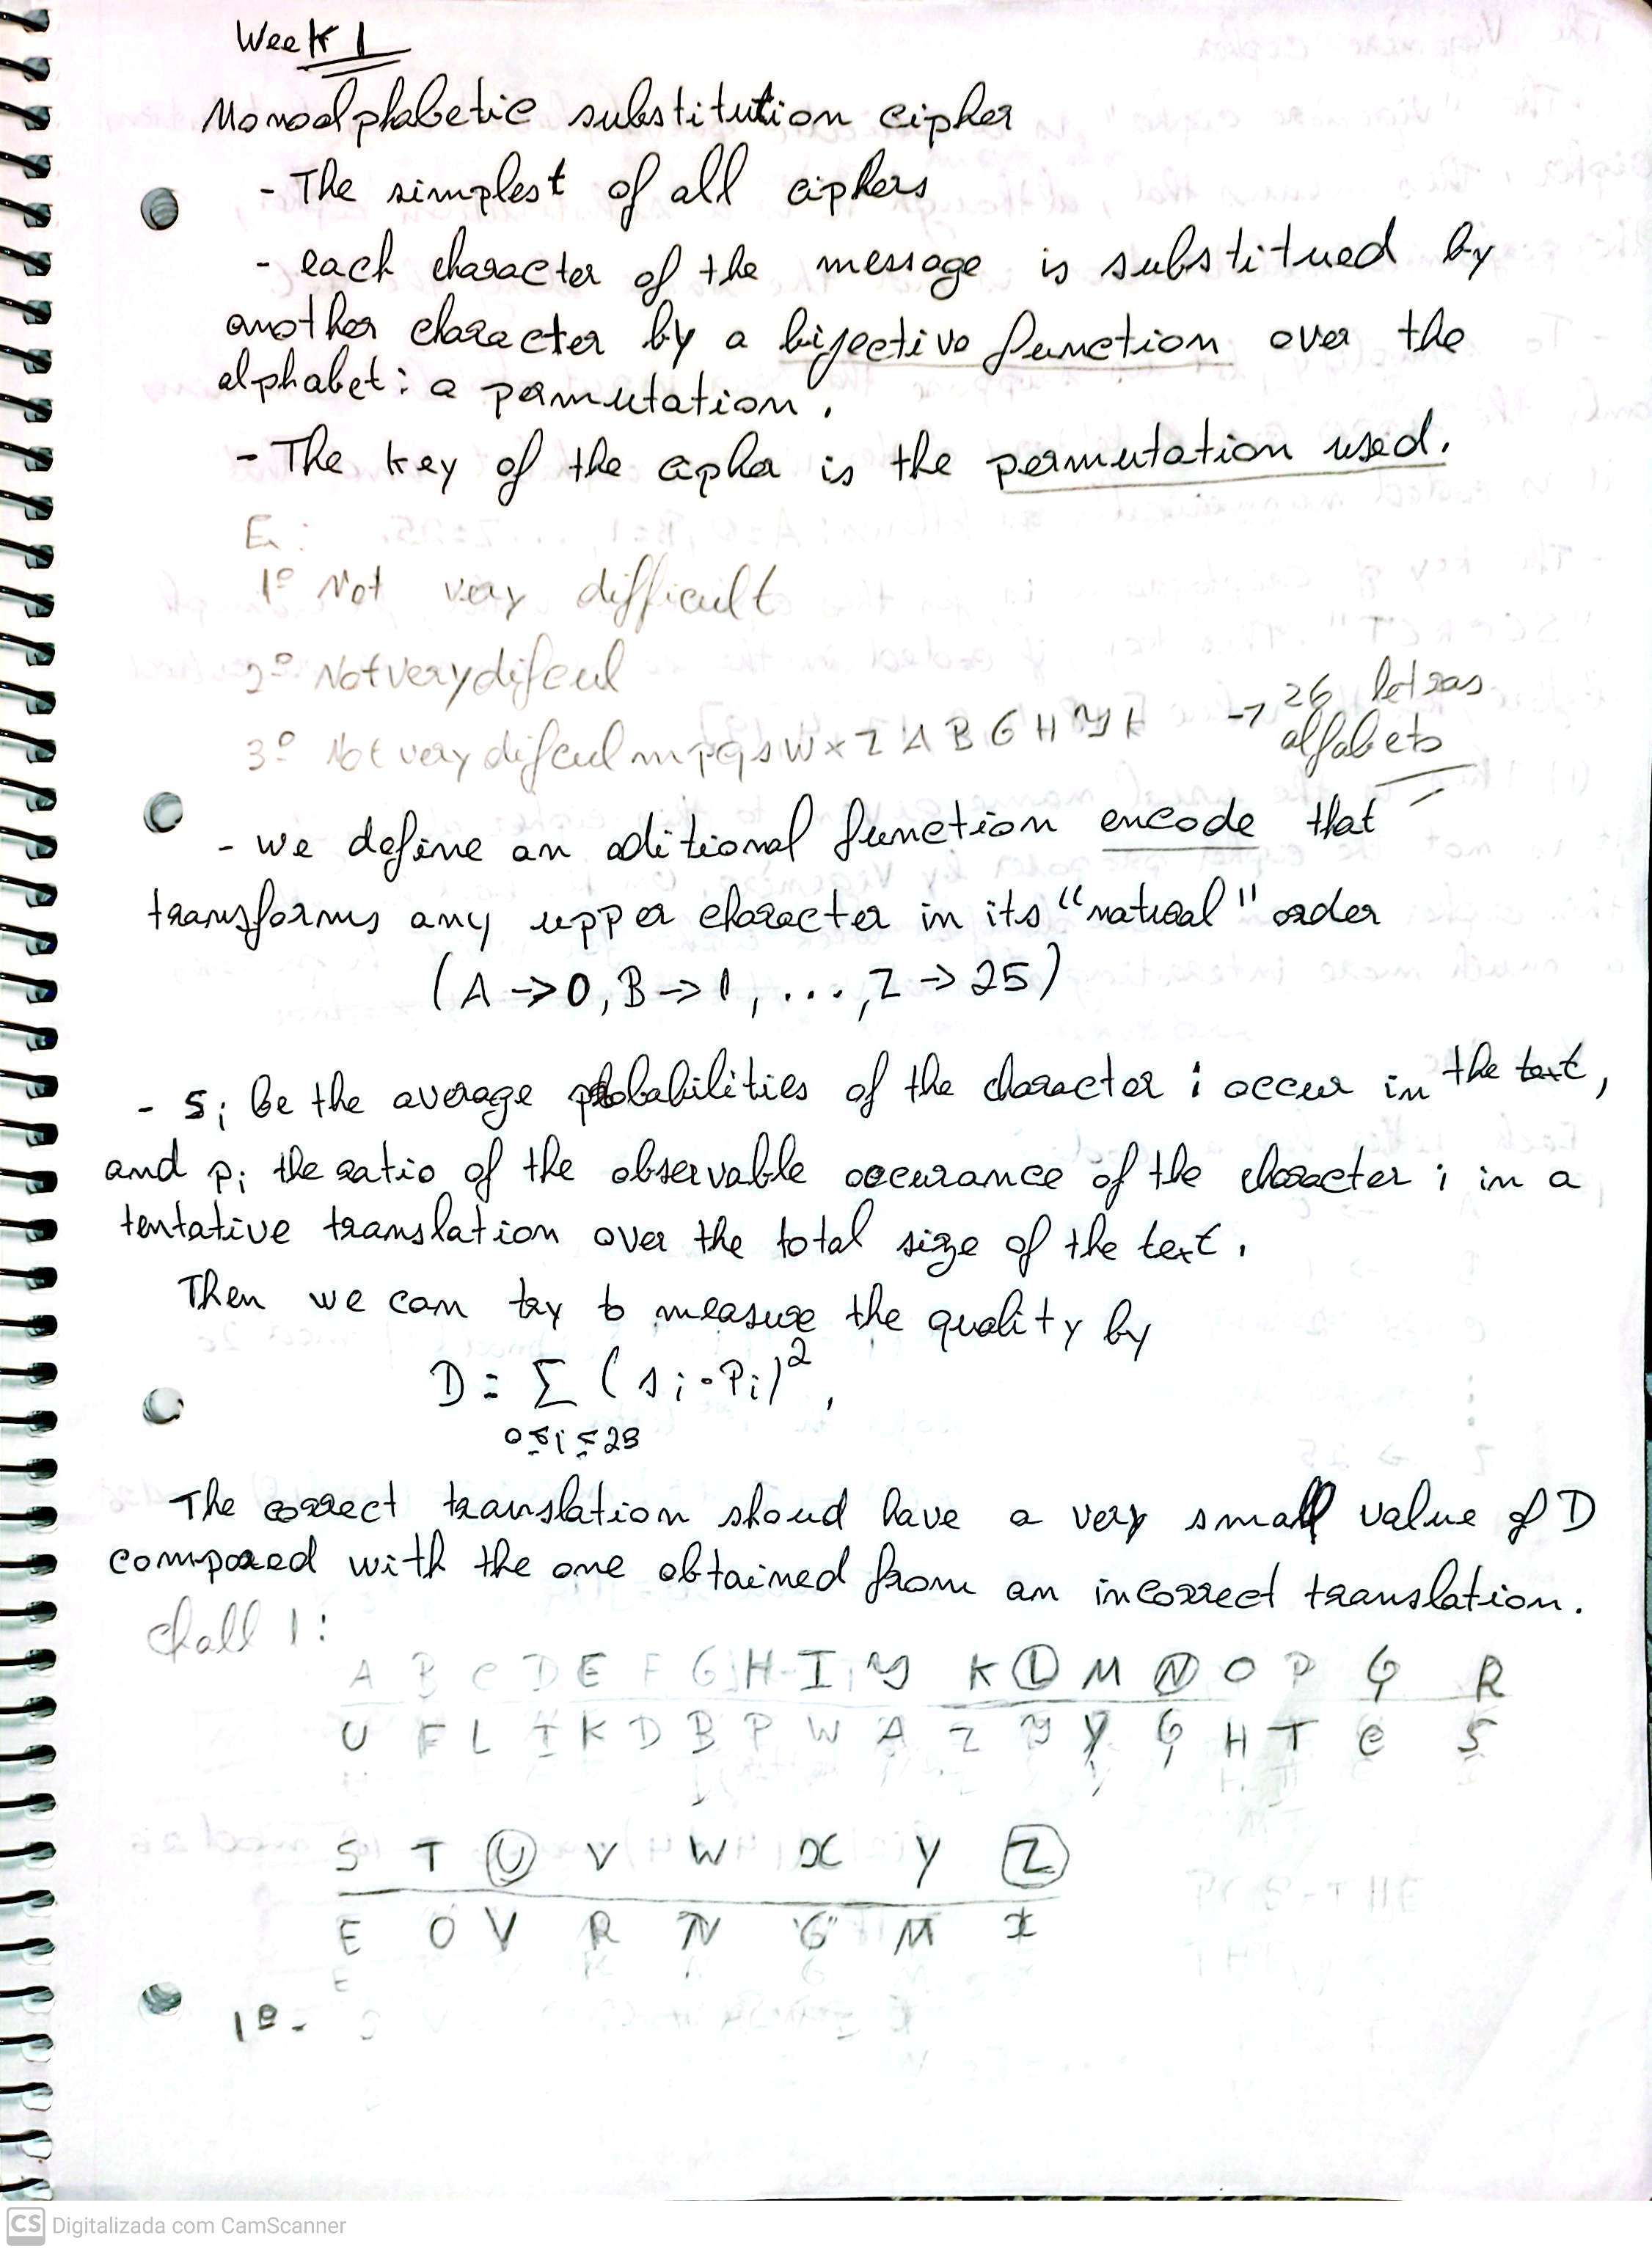 Week 1
Monoalphabetic substitution cipher
- The simplest of all ciphers
- each character of the message is substitued by
another character by a bijective function over the
alphabet: a permutation.
- The key of the cipher is the permutation used.
Ex:
1º Not very difficult
2º Notverydifcul
3º Notverydifculmpqswxzabghjk → 26 letras
alfabeto
- we define an aditional function encode that
transforms any upper character in its "natural" order
(A → 0, B → 1, ..., Z → 25)
- Si be the average probabilities of the character i occur in the text,
and pi the ratio of the observable occurance of the character i in a
tentative translation over the total size of the text.
Then we can try to measure the quality by
D = Σ (si - Pi)²,
0 ≤ i ≤ 25
The correct translation shoud have a very small value of D
compared with the one obtained from an incorrect translation.
chall 1:
A B C D E F G H I J K L M N O P Q R
U F L I K D B P W A Z J Y Q H T C S
S T U V W X Y Z
E O V R N G M X
1º-
CS Digitalizada com CamScanner